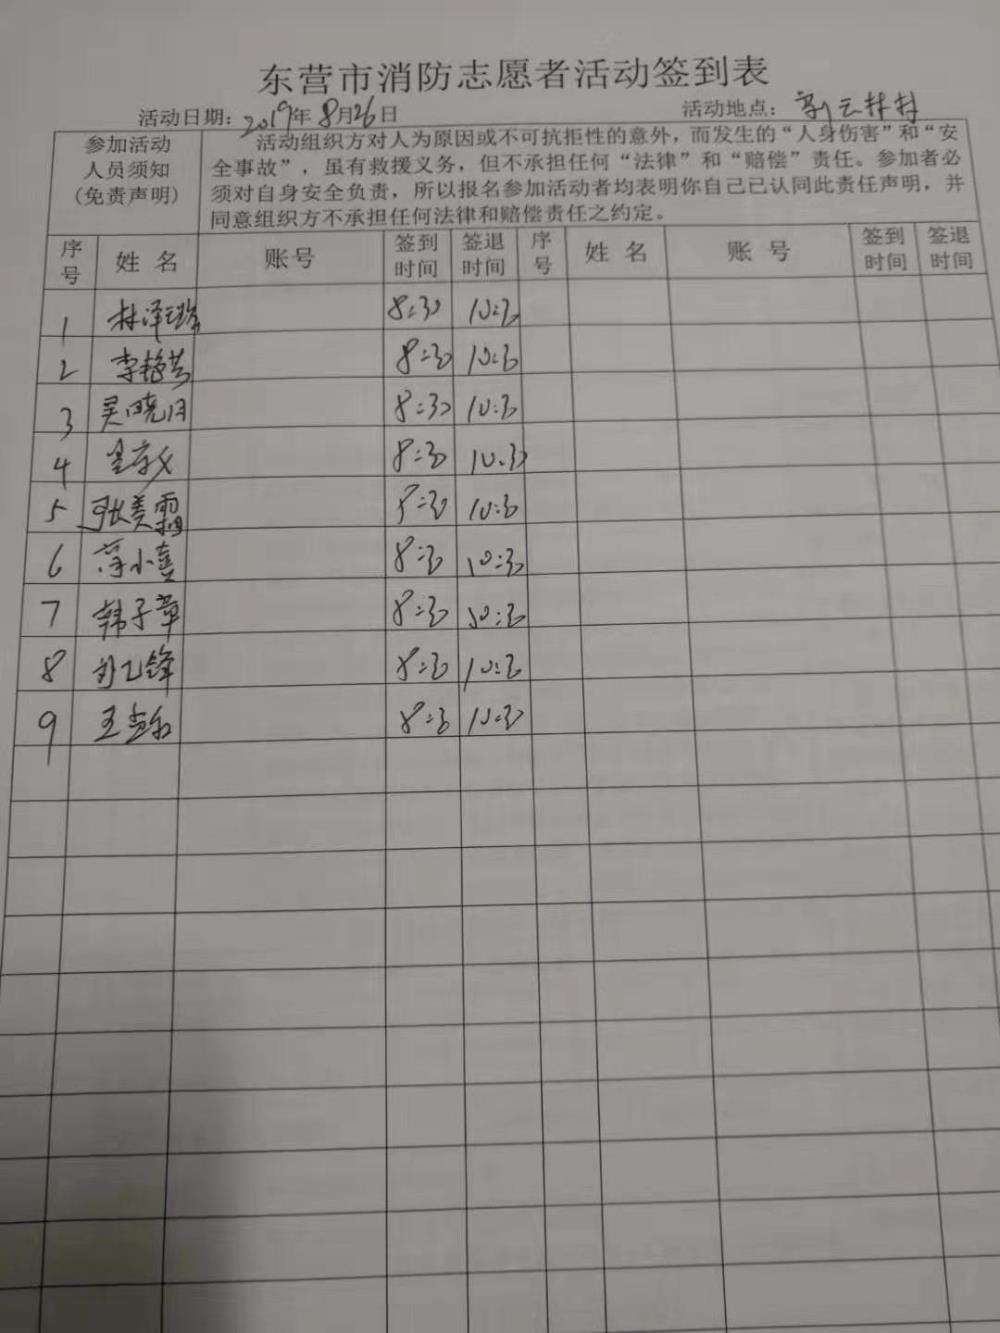 东营市消防志愿者活动签到表
活动日期：2019年8月26日 活动地点：刘云林村
参加活动人员须知(免责声明)
活动组织方对人为原因或不可抗拒性的意外，而发生的“人身伤害”和“安
全事故”，虽有救援义务，但不承担任何“法律”和“赔偿”责任。参加者必
须对自身安全负责，所以报名参加活动者均表明你自己已认同此责任声明，并
同意组织方不承担任何法律和赔偿责任之约定。
序号 姓名 账号 签到时间 签退时间 序号 姓名 账号 签到时间 签退时间
1 林泽 8:30 10:30
2 李艳芸 8:30 10:30
3 吴晓月 8:30 10:30
4 8:30 10:30
5 张美霜 8:30 10:30
6 小喜 8:30 10:30
7 韩子章 8:30 10:30
8 锋 8:30 10:30
9 王 8:30 10:30